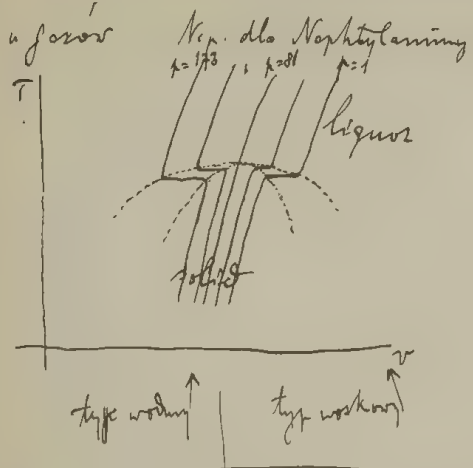 u gazów
Np. dla Naphtylaminy
p=173 p=81 p=1
T
liquor
solid
v
typ wodny typ woskowy